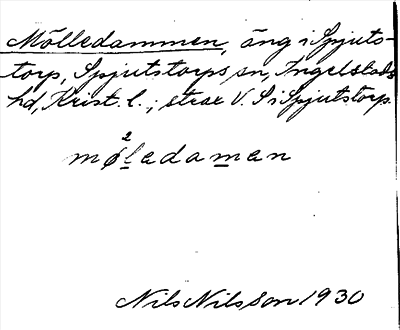 Mölledammen, äng i Spjuts-
torp, Spjutstorps sn, Ingelstads
hd, Krist. l., strax V. S i Spjutstorp.
2
møledamen
Nils Nilsson 1930